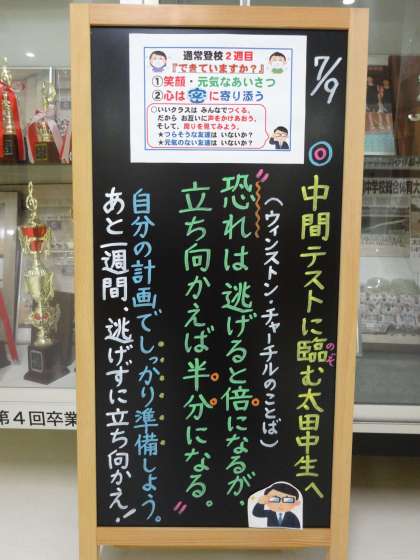 通常登校2週目
『できていますか?』
①笑顔・元気なあいさつ
②心は密に寄り添う
○いいクラスは みんなでつくる。
だから お互いに声をかけあおう。
そして、周りを見てみよう。
★つらそうな友達は いないか?
★元気のない友達は いないか?
7/9
◎中間テストに臨む太田中生へ
のぞ
(ウィンストン・チャーチルのことば)
"恐れは逃げると倍になるが
立ち向かえば半分になる。"
自分の計画でしっかり準備しよう。
あと一週間、逃げずに立ち向かえ!
第4回卒業